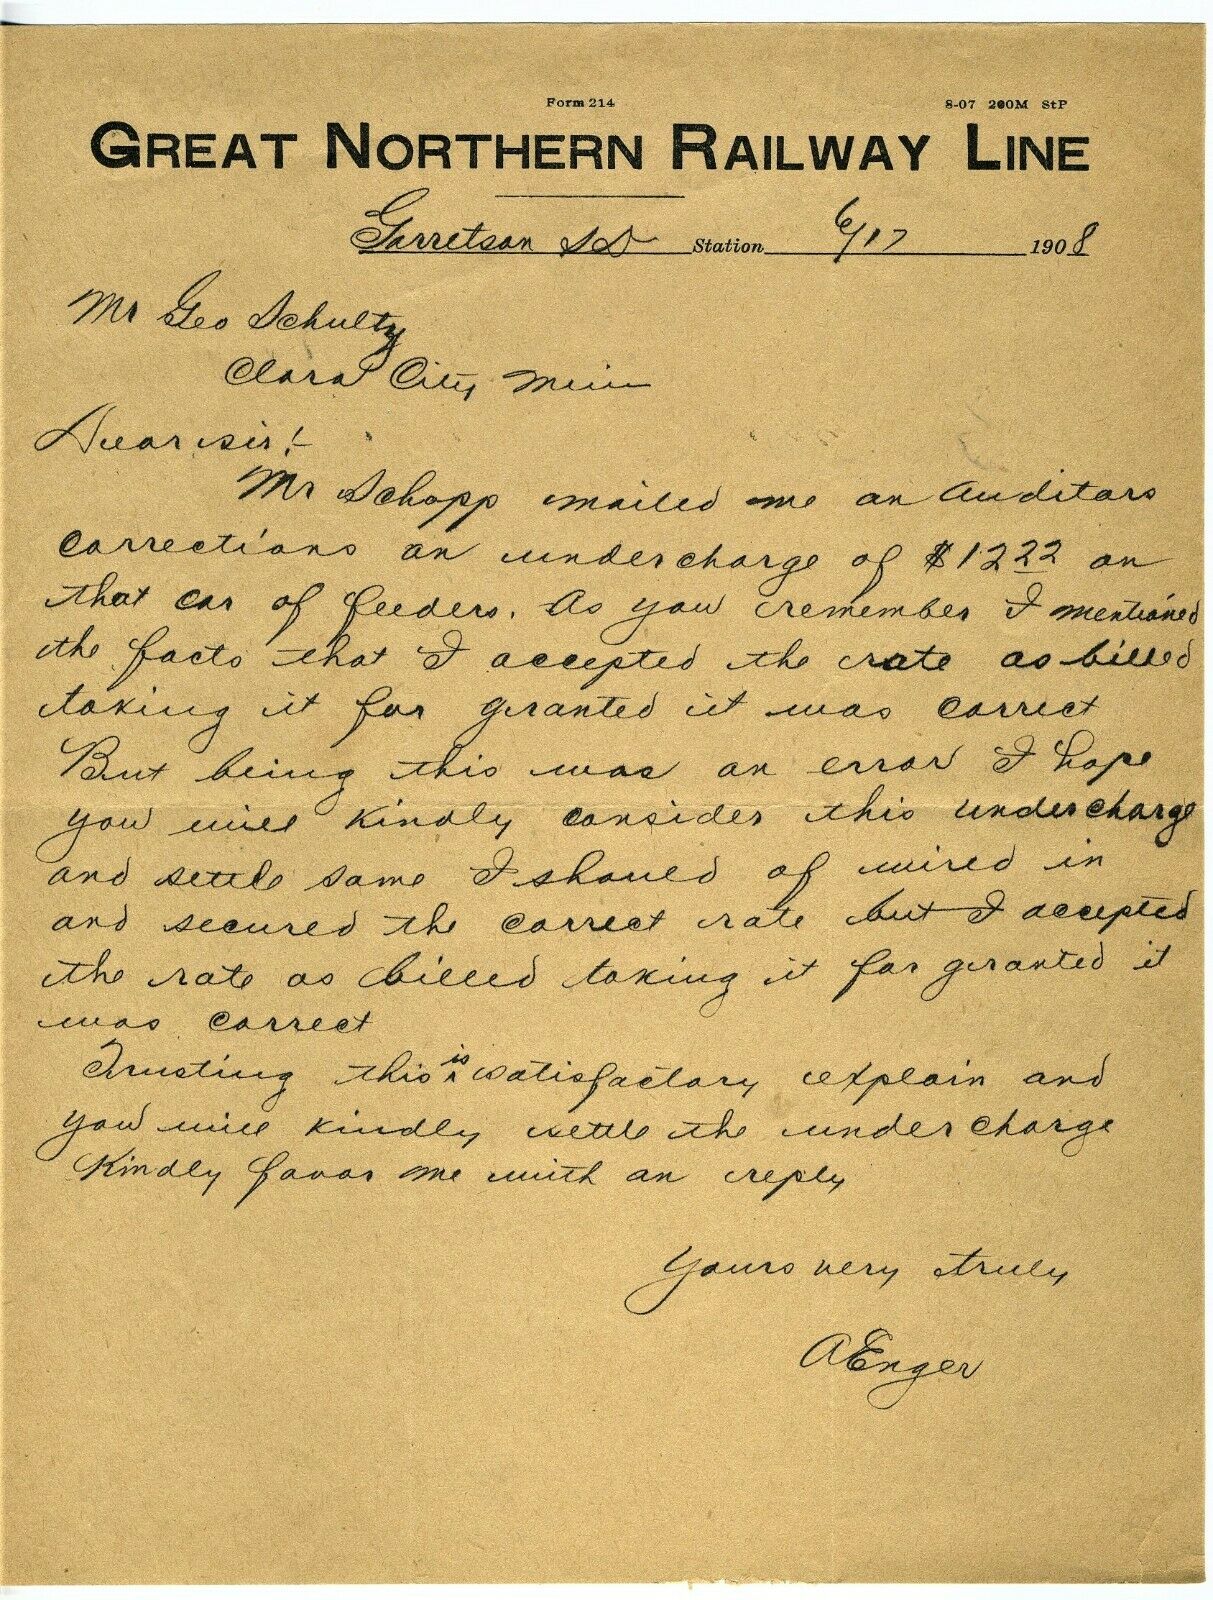 Form 214
8-07 200M StP
GREAT NORTHERN RAILWAY LINE
Garretson SD Station 6/17 1908
Mr Geo Schultz
Clara City Minn
Dear sir!-
Mr Schopp mailed me an Auditors
corrections an undercharge of $12 22 on
that car of feeders. As you remember I mentioned
the facts that I accepted the rate as billed
taking it for granted it was correct
But being this was an error I hope
you will kindly consider this undercharge
and settle same I should of wired in
and secured the correct rate but I accepted
the rate as billed taking it for granted it
was correct
Trusting this is satisfactory explain and
you will kindly settle the undercharge
Kindly favor me with an reply
Yours very truly
A Enger